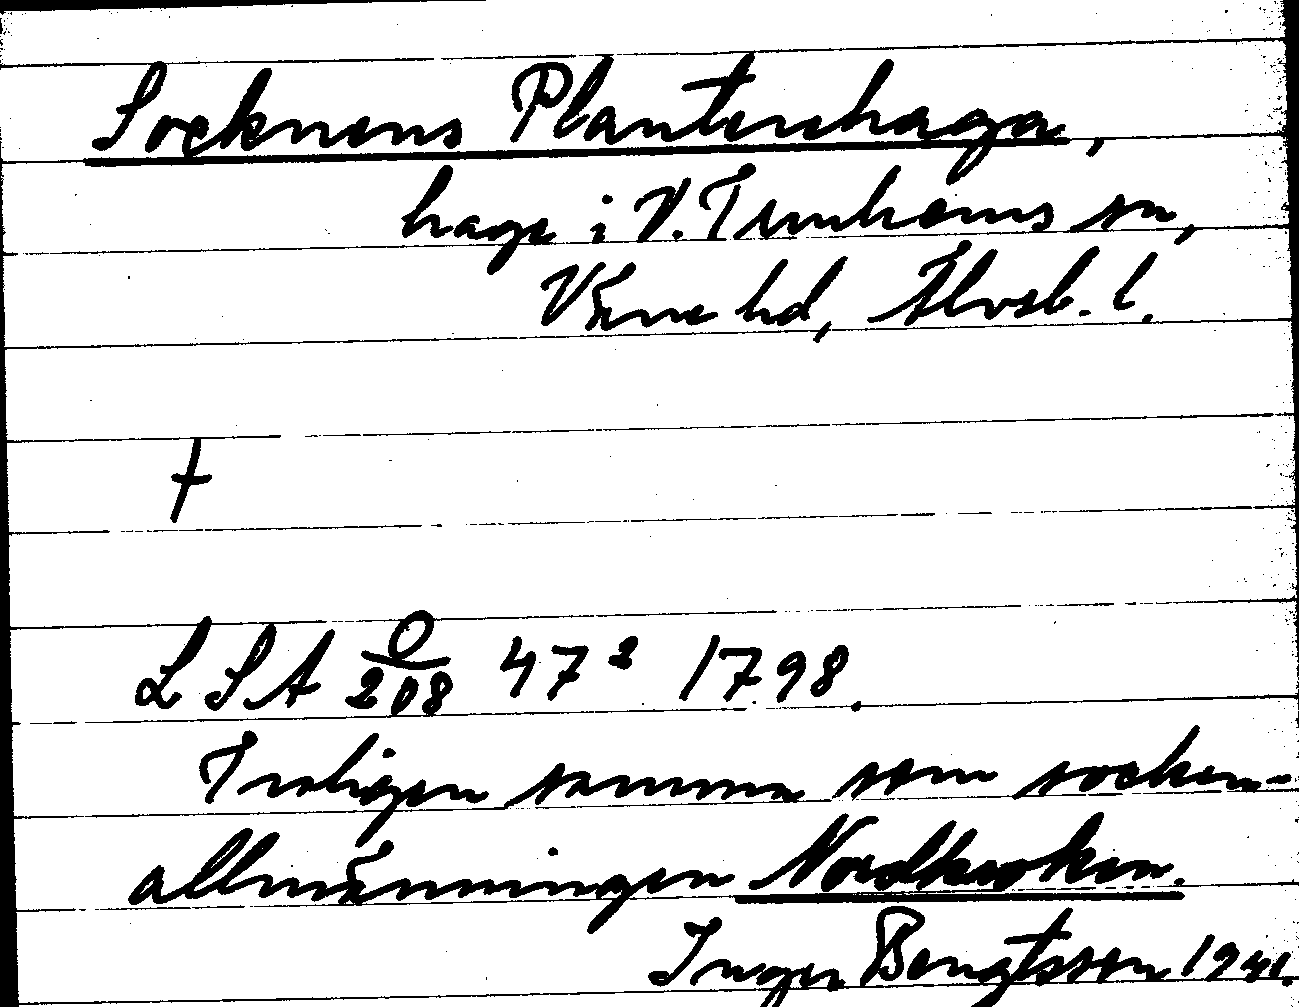 Socknens Planterhaga,
hage i V. Tunhems sn,
Väne hd, Älvsb. l.
†
LSA O/208 47² 1798.
Troligen samma som socken-
allmänningen Nordkroken.
Inger Bengtsson 1941.